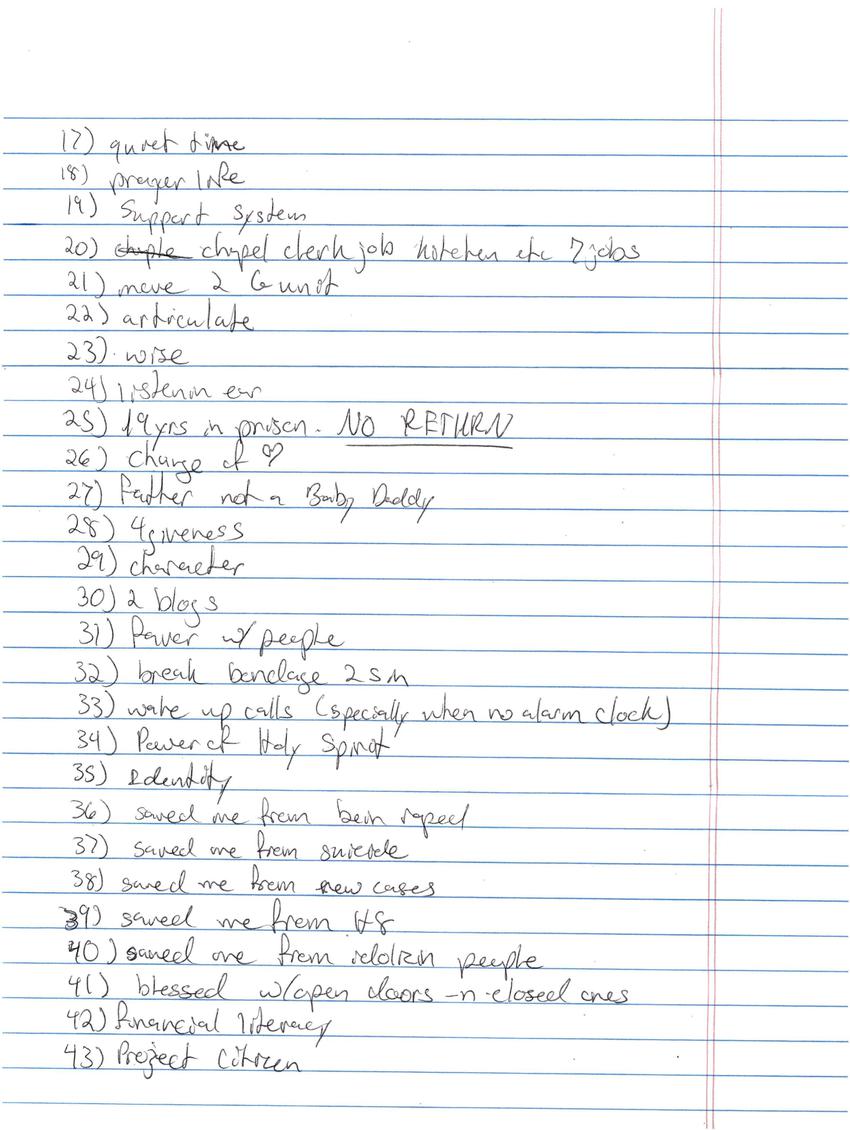 17) quiet time
18) prayer life
19) Support system
20) chaple chapel clerk job kitchen etc 7 jobs
21) move 2 G unit
22) articulate
23). wise
24) listenin ear
25) 19 yrs in prison. NO RETURN
26) change of ♡
27) Father not a Baby Daddy
28) 4giveness
29) character
30) 2 blogs
31) Favor w/ people
32) break bondage 2 sin
33) wake up calls (specially when no alarm clock)
34) Power of Holy Spirit
35) Identity
36) saved me from bein raped
37) saved me from suicide
38) saved me from new cases
39) saved me from
40) saved me from people
41) blessed w/ open doors -n- closed ones
42) financial literacy
43) Project Citizen